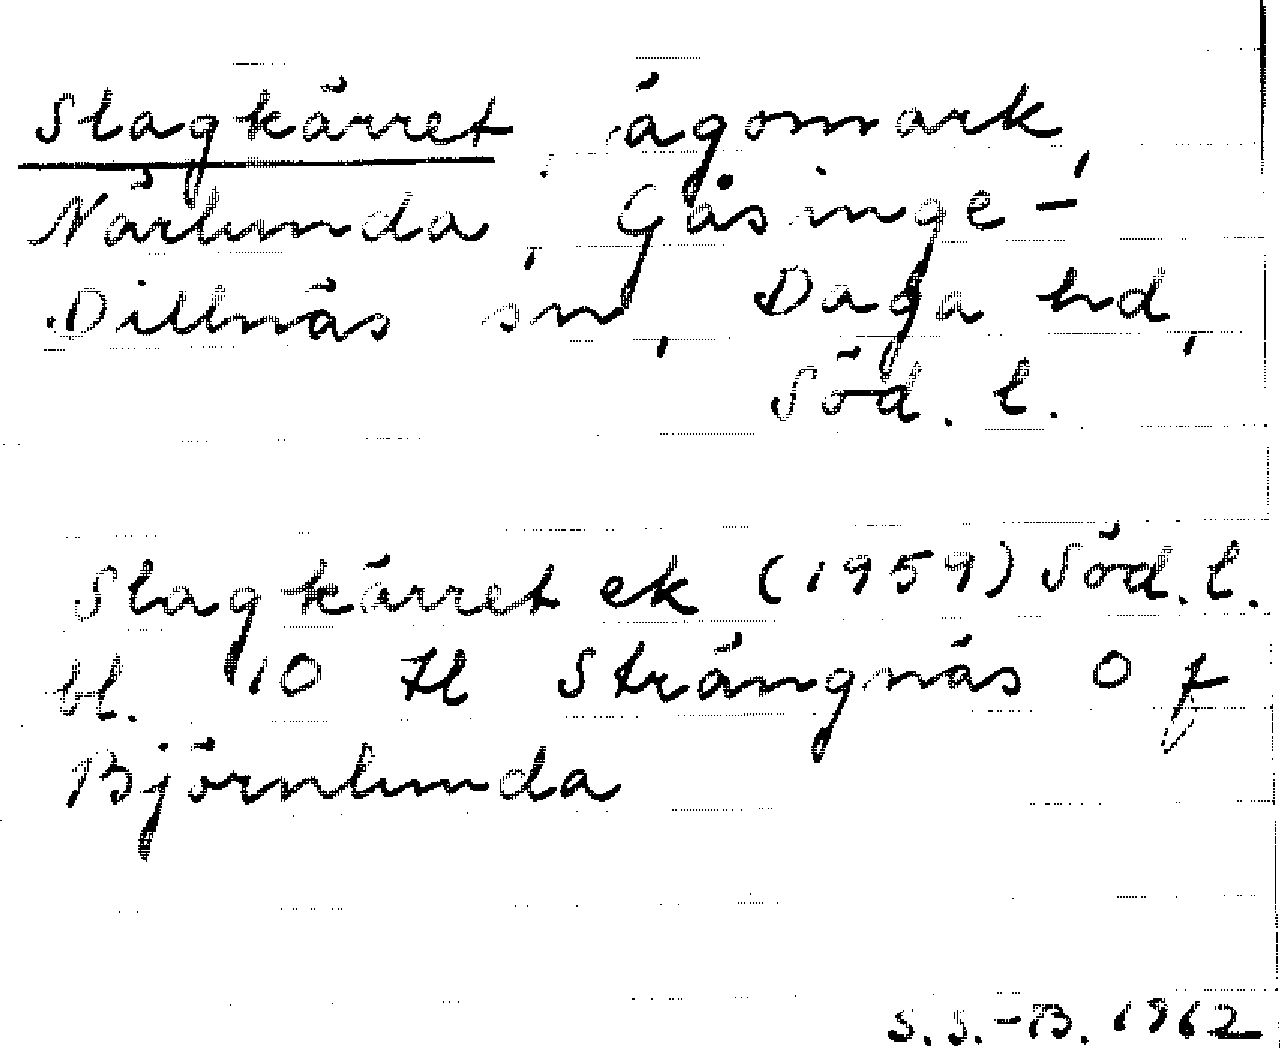 Slagkärret, ägomark,
Närlunda, Gåsinge-
Dillnäs sn, Daga hd,
Söd. l.
Slagkärret ek (1959) Söd. l.
bl. 10 Hl Strängnäs O f
Björnlunda
S.S.-B. 1962